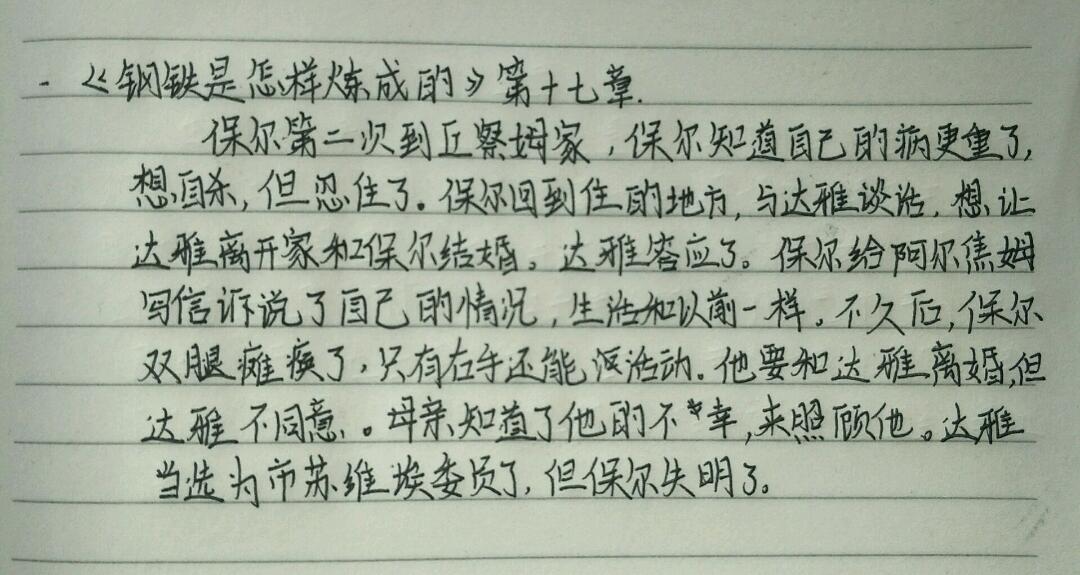 - 《钢铁是怎样炼成的》第十七章.
保尔第二次到丘察姆家，保尔知道自己的病更重了，
想自杀，但忍住了。保尔回到住的地方，与达雅谈话，想让
达雅离开家和保尔结婚。达雅答应了。保尔给阿尔焦姆
写信诉说了自己的情况，生活和以前一样。不久后，保尔
双腿瘫痪了，只有右手还能活动。他要和达雅离婚，但
达雅不同意。母亲知道了他的不幸，来照顾他。达雅
当选为市苏维埃委员了，但保尔失明了。